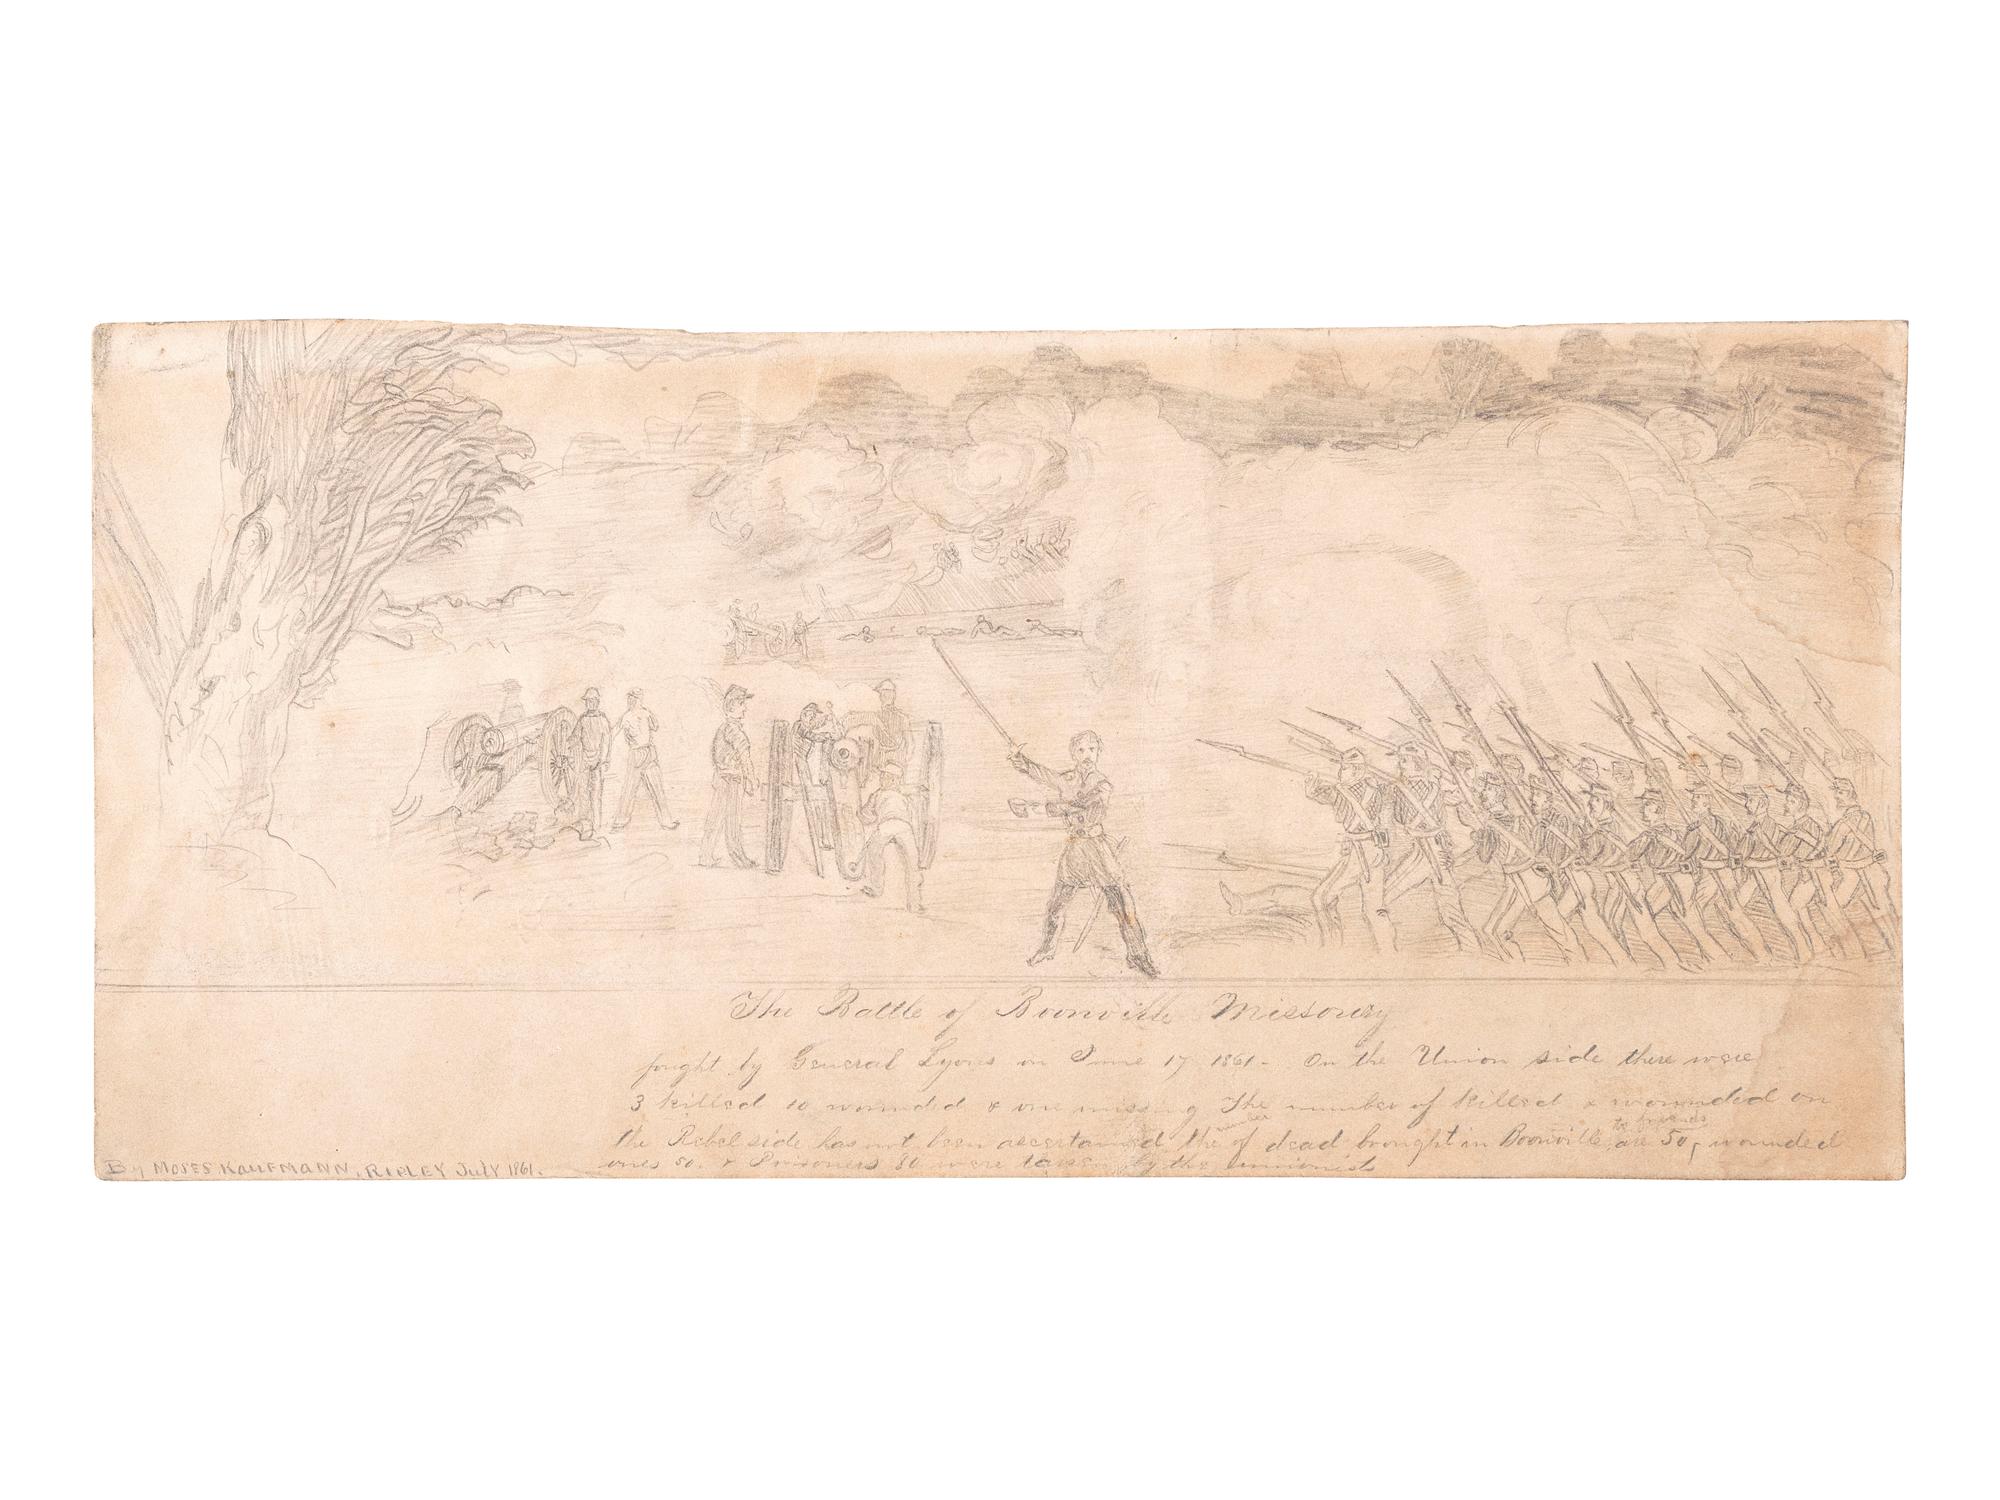 The Battle of Boonville Missoury
fought by General Lyons on June 17 1861 - On the Union side there were
3 killed 10 wounded & one missing The number of killed & wounded on
the Rebel side has not been ascertained, the number of dead brought in Boonville to friends are 50, wounded
ones 50. & Prisoners 80 were taken by the unionists
By MOSES KAUFMANN, RIPLEY JULY 1861.